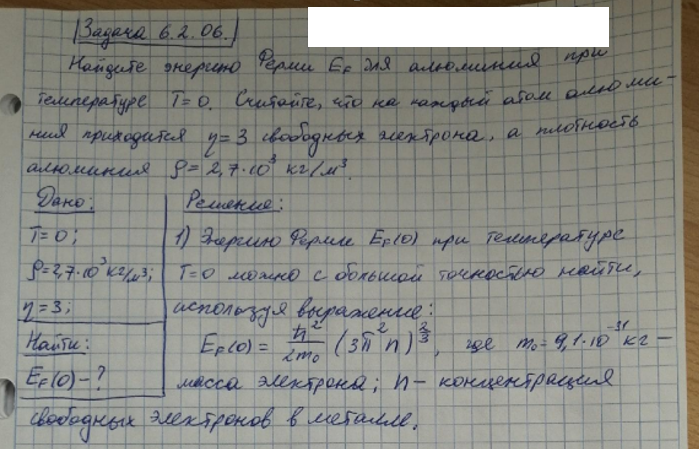 Задача 6.2.06.
Найдите энергию Ферми E_F для алюминия при
температуре T=0. Считайте, что на каждый атом алюми-
ния приходится η=3 свободных электрона, а плотность
алюминия ρ=2,7·10³ кг/м³.
Дано:
T=0;
ρ=2,7·10³кг/м³;
η=3;
Найти:
E_F(0)-?
Решение:
1) Энергию Ферми E_F(0) при температуре
T=0 можно с большой точностью найти,
используя выражение:
E_F(0) = ħ²/2m₀ (3π²n)^⅔, где m₀=9,1·10⁻³¹кг —
масса электрона; n — концентрация
свободных электронов в металле.